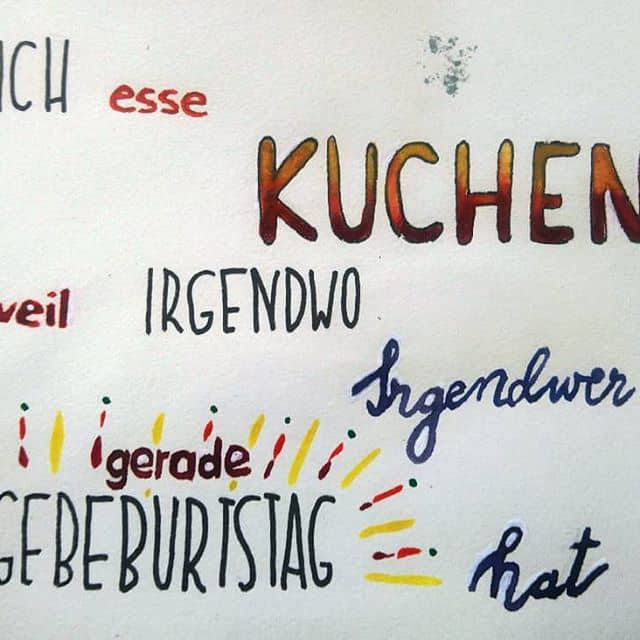 ICH esse
KUCHEN
weil IRGENDWO
Irgendwer
gerade
GEBEBURTSTAG
hat